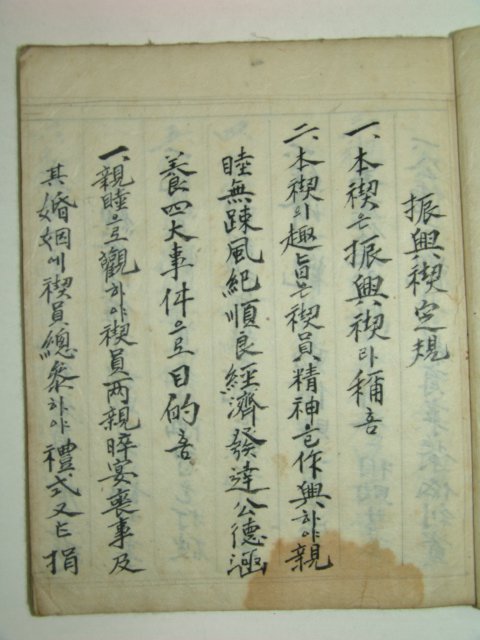 振興禊定規
一、本禊은振興禊라稱홈
二、本禊의趣旨은禊員、精神을作興하야親
睦無疎風紀順良經濟發達公德涵
養四大事件으로目的홈
一、親睦으로觀하야禊員两親晬宴喪事及
其婚姻에禊員總參하야禮式又는捐